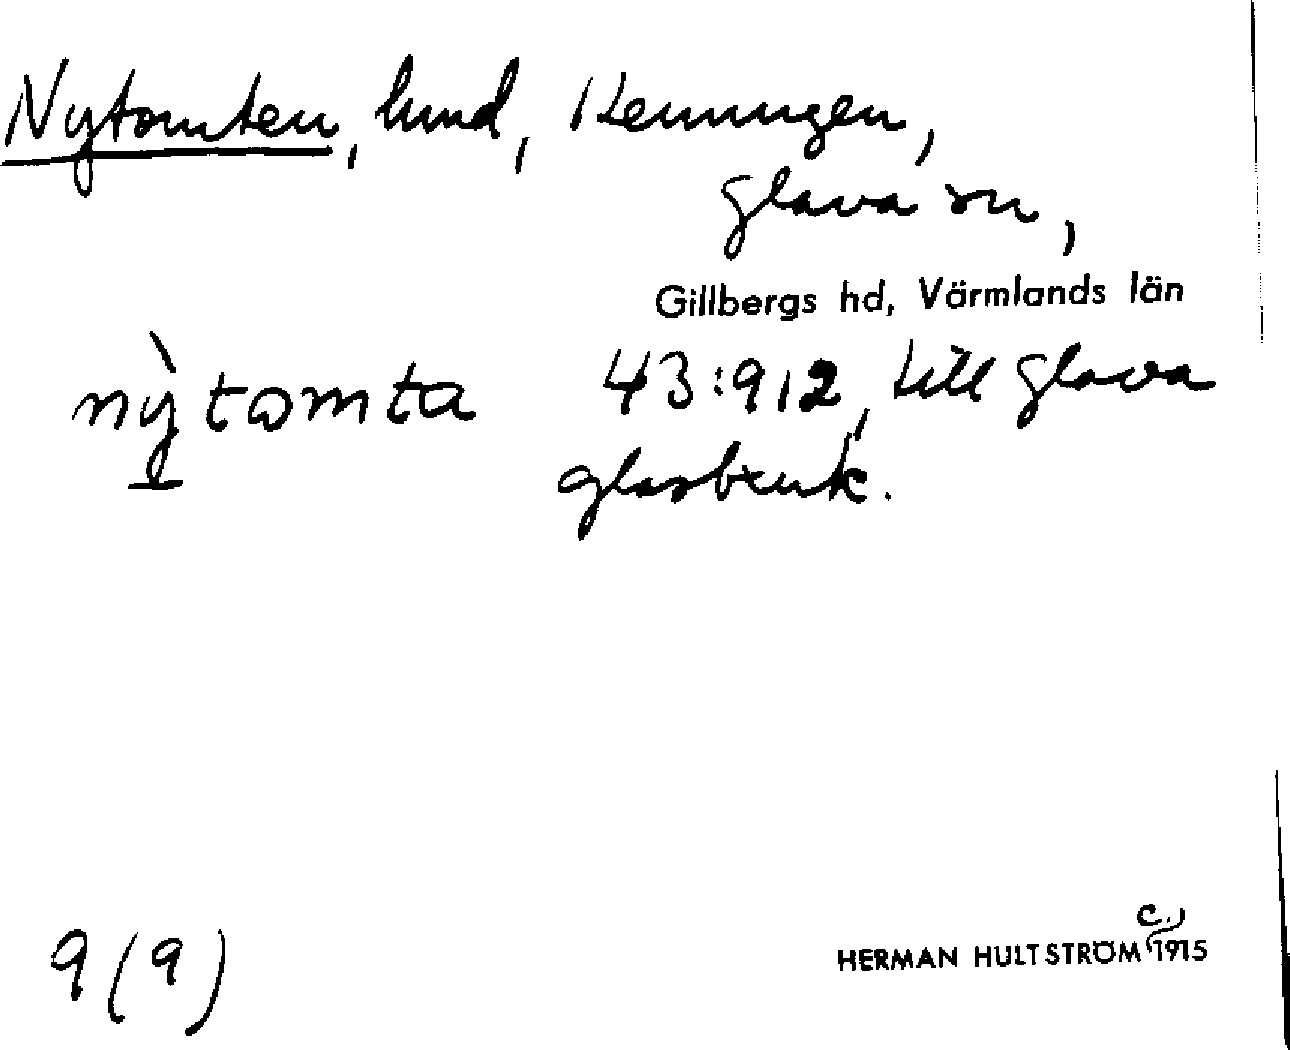 Nytomten, lund, Henningen,
Glava sn,
Gillbergs hd, Värmlands län
nỳtomta 43:912, till Glava
glasbruk.
9 (9)
c.,
HERMAN HULTSTRÖM 1915